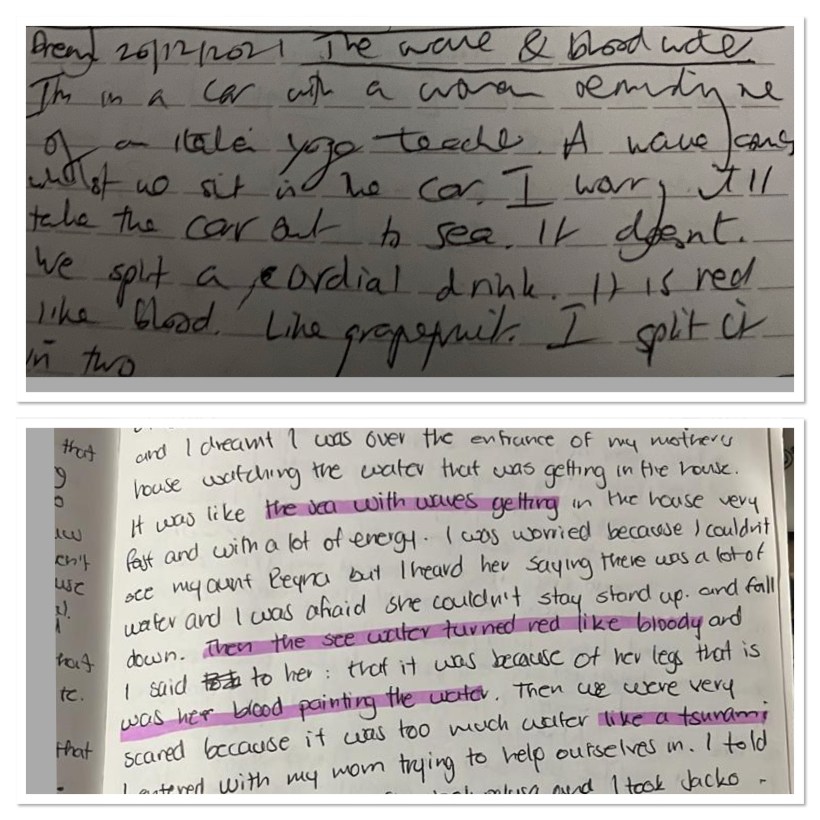 Dream 20/12/2021 The wave & blood
I'm in a car with a woman reminding me
of an yoga teacher. A wave comes
whilst we sit in the car. I worry It'll
take the car out to sea. It doesnt.
We split a cordial drink. It is red
like blood. Like grapefruit. I split it
in two
and I dreamt I was over the entrance of my mothers
house watching the water that was getting in the house.
It was like the sea with waves getting in the house very
fast and with a lot of energy. I was worried because I couldn't
see my aunt Reyna but I heard her saying there was a lot of
water and I was afraid she couldn't stay stand up. and fall
down. Then the see water turned red like bloody and
I said to her: that it was because of her legs that is
was her blood painting the water. Then we were very
scared because it was too much water like a tsunami
I entered with my mom trying to help ourselves in. I told
and I took Jacko -
that
that
te.
that